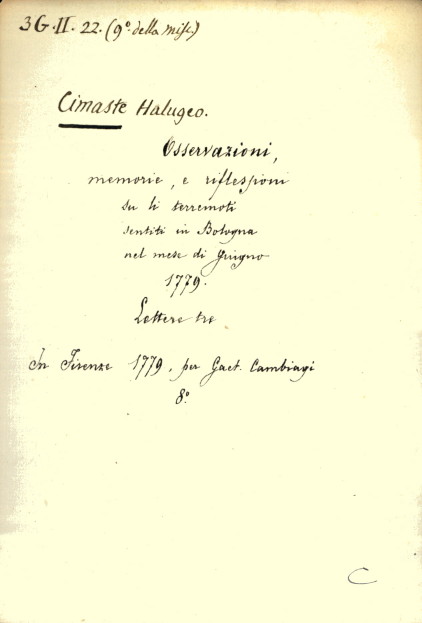 3G.II.22. (9º. della misc.)
Cimaste Halugeo.
Osservazioni,
memorie, e riflessioni
su li terremoti
sentiti in Bologna
nel mese di Giugno
1779.
Lettere tre
In Firenze 1779, per Gaet. Cambiagi
8º
C